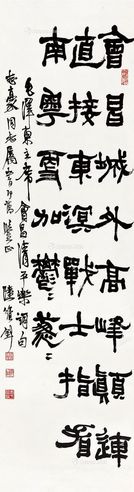 會昌城外高峰顛連
直接東溟戰士指看
南粵更加鬱〻蔥〻
毛澤東主席會昌清平樂詞句
同志屬書即希正
陸維釗